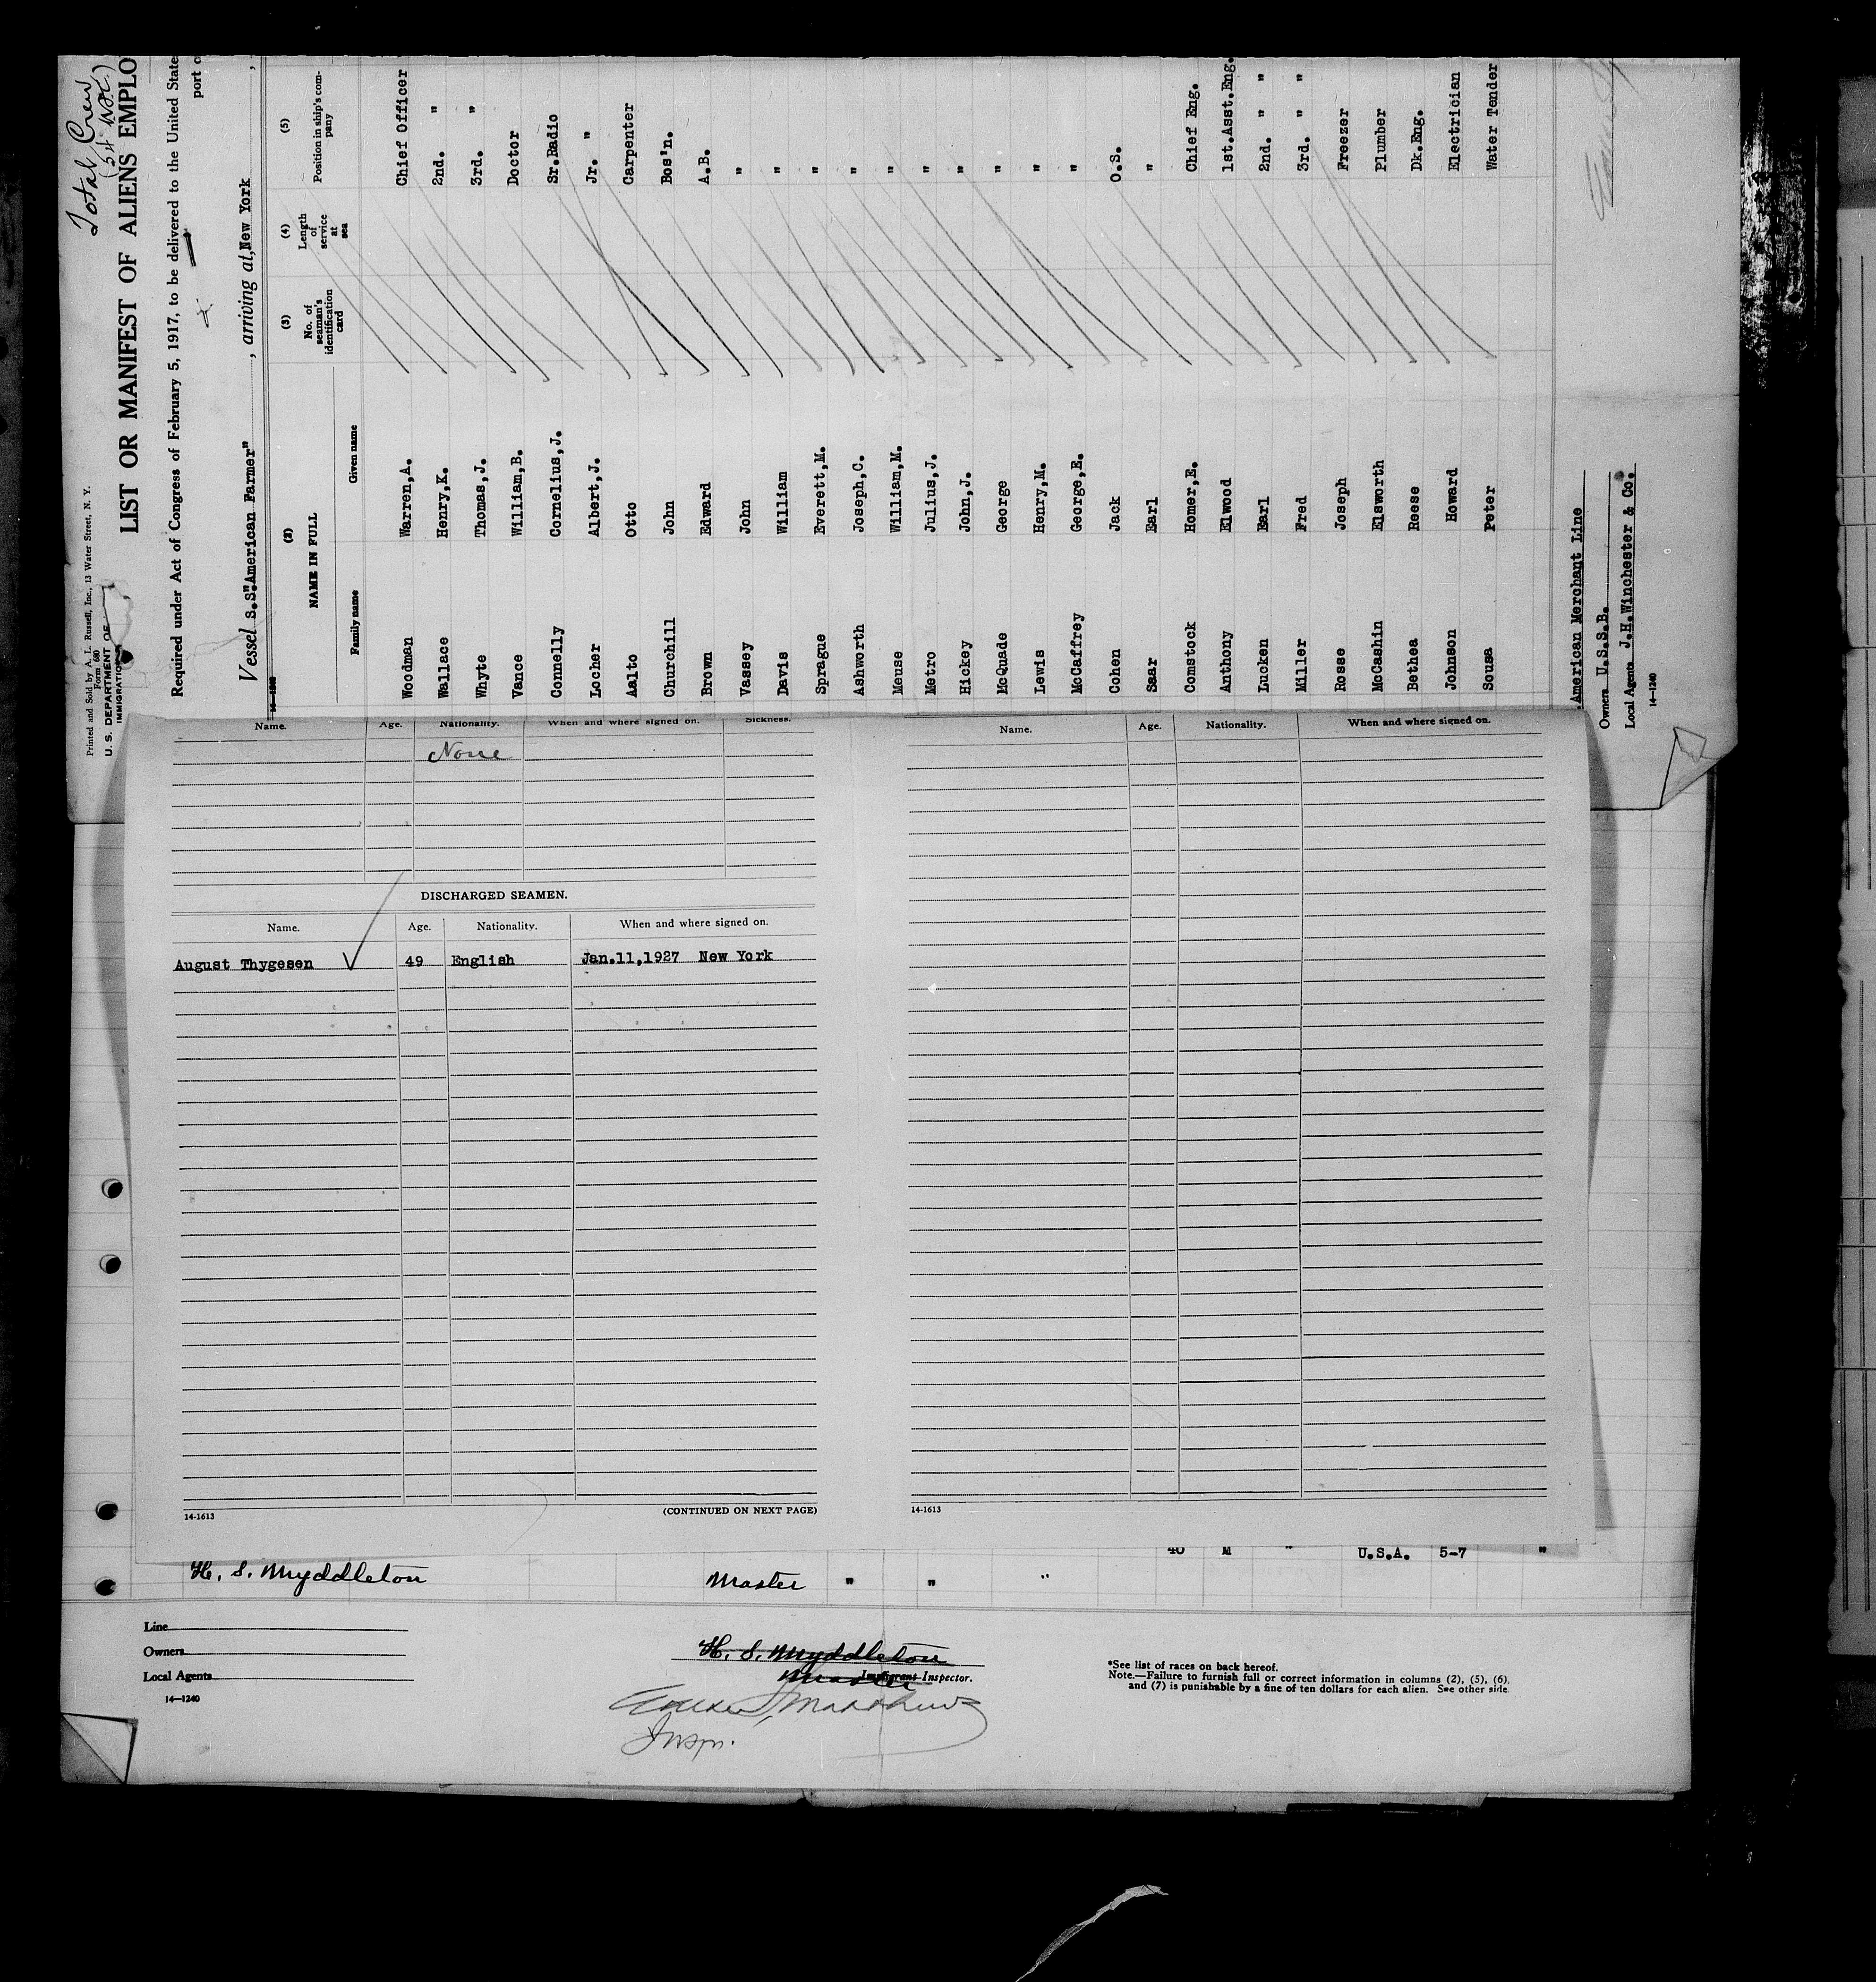 Total Crew
(54
Printed and Sold by A. L. Russell, Inc., 13 Water Street, N. Y.
Form 680
U. S. DEPARTMENT OF
IMMIGRATION
LIST OR MANIFEST OF ALIENS EMPLO
Required under Act of Congress of February 5, 1917, to be delivered to the United State
port o
Vessel S.S."American Farmer" , arriving at, New York ,
(2) (3) (4) (5)
NAME IN FULL No. of seaman's identification card Length of service at sea Position in ship's company
Family name Given name
Woodman Warren,A. Chief Officer
Wallace Henry,K. 2nd. "
Whyte Thomas,J. 3rd. "
Vance William,B. Doctor
Connelly Cornelius,J. Sr.Radio
Locher Albert,J. Jr. "
Aalto Otto Carpenter
Churchill John Bos'n.
Brown Edward A.B.
Vassey John "
Davis William "
Sprague Everett,M. "
Ashworth Joseph,C. "
Meuse William,M. "
Metro Julius,J. "
Hickey John,J. "
McQuade George "
Lewis Henry,M. "
McCaffrey George,E. "
Cohen Jack O.S.
Saar Earl "
Comstock Homer,E. Chief Eng.
Anthony Elwood 1st.Asst.Eng.
Lucken Earl 2nd. " "
Miller Fred 3rd. " "
Rosse Joseph Freezer
McCashin Elsworth Plumber
Bethea Reese Dk.Eng.
Johnson Howard Electrician
Sousa Peter Water Tender
American Merchant Line
Owners U.S.S.B.
Local Agents J.H.Winchester & Co.
14-1240
Name. Age. Nationality. When and where signed on. Sickness.
None
DISCHARGED SEAMEN.
Name. Age. Nationality. When and where signed on.
August Thygesen 49 English Jan.11,1927 New York
14-1613 (CONTINUED ON NEXT PAGE)
Name. Age. Nationality. When and where signed on.
14-1613
40 M " U.S.A. 5-7 "
H. S. Myddleton Master " " "
Line
Owners
Local Agents
14—1240
H. S. Myddleton
Master
Immigrant Inspector.
Matthews
Inspr.
*See list of races on back hereof.
Note.—Failure to furnish full or correct information in columns (2), (5), (6),
and (7) is punishable by a fine of ten dollars for each alien. See other side.